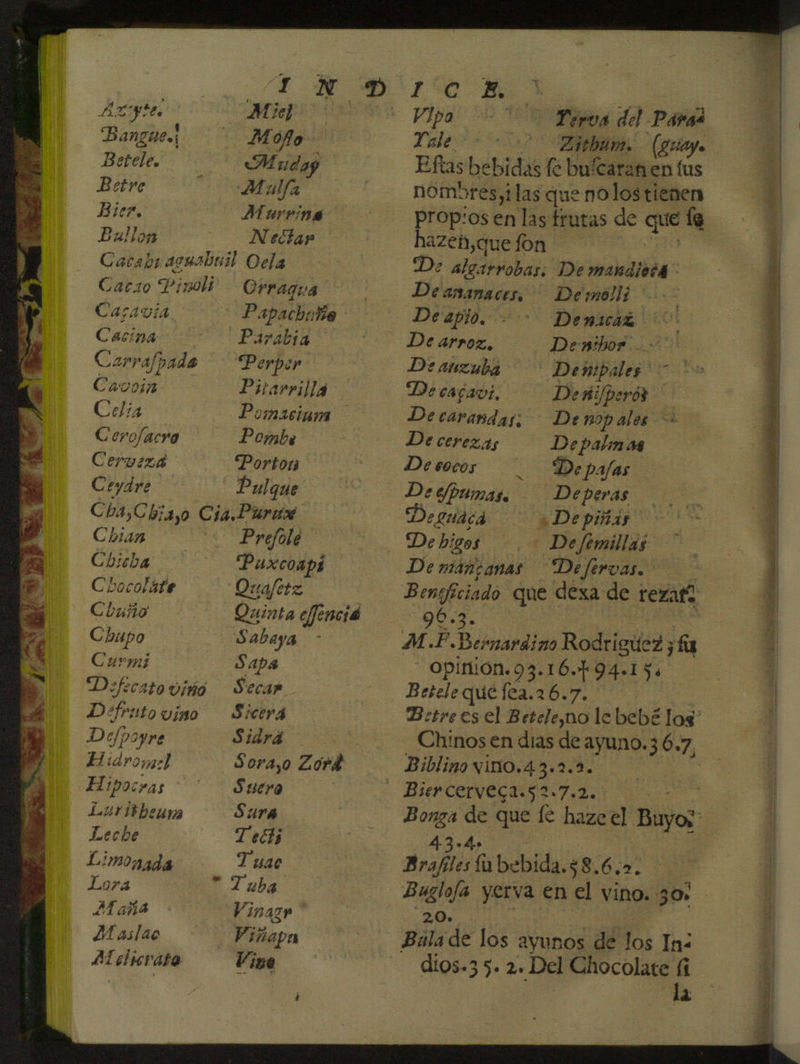 INDICE.
Azyte.
Bangue.
Betele.
Betre
Bier.
Bullon
Cacabi aguabuil
Cacao Pinoli
Caçavia
Cacina
Carraspada
Cavoin
Celia
Cerofacra
Cerveza
Ceydre
Cha, Chia, o Cia.
Chian
Chicha
Chocolate
Chuño
Chupo
Curmi
Defecato vino
Defruto vino
Despoyre
Hidromel
Hipocras
Luritheum
Leche
Limonada
Lora
Maña
Maslac
Melicrato
Miel
Mosto
Muday
Mulsa
Murrina
Nectar
Oela
Orraqua
Papachuña
Parabia
Perper
Pitarrilla
Pomacium
Pombe
Porton
Pulque
Purux
Presole
Puxcoapi
Quasetz
Quinta essencia
Sabaya
Sapa
Secar
Sicera
Sidra
Sora, o Zora
Suero
Sura
Tecti
Tuac
Tuba
Vinagr
Viñapa
Vino
Vlpo Yerva del Para-
Yale Zithum. (guay.
Estas bebidas se buscaran en sus
nombres, i las que no los tienen
propios en las frutas de que se
hazen, que son
De algarrobas. De mandioca
De ananaces. De molli
De apio. De nacaz
De arroz. De nibor
De auzuba De nipales
De caçavi. De nisperos
De carandas. De nopales
De cerezas De palmas
De cocos De pasas
De espumas. De peras
De guaçá De piñas
De higos De semillas
De mançanas De servas.
Beneficiado que dexa de rezar.
96.3.
M.F. Bernardino Rodriguez; su
opinion. 93.16. † 94.15.
Betele què sea. 26.7.
Betre es el Betele, no le bebé los
Chinos en dias de ayuno. 36.7.
Biblino vino. 43.2.2.
Bier cerveça. 52.7.2.
Bonga de que se haze el Buyo.
43.4.
Brasiles su bebida. 58.6.2.
Buglosa yerva en el vino. 30.
20.
Bula de los ayunos de los In-
dios. 35.2. Del Chocolate si
la